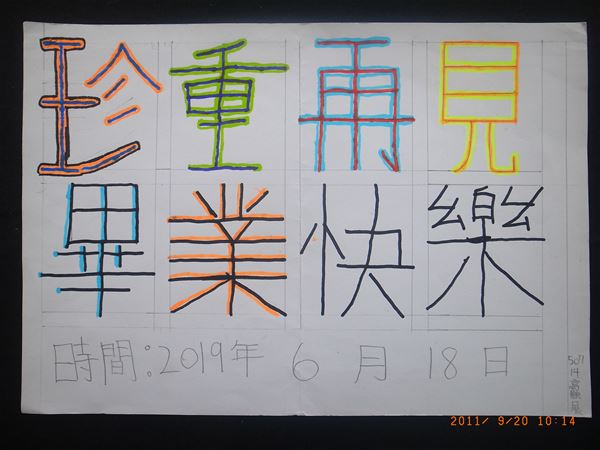 珍重再見
畢業快樂
時間:2019年 6 月 18 日
507
14
高
2011/ 9/20 10:14